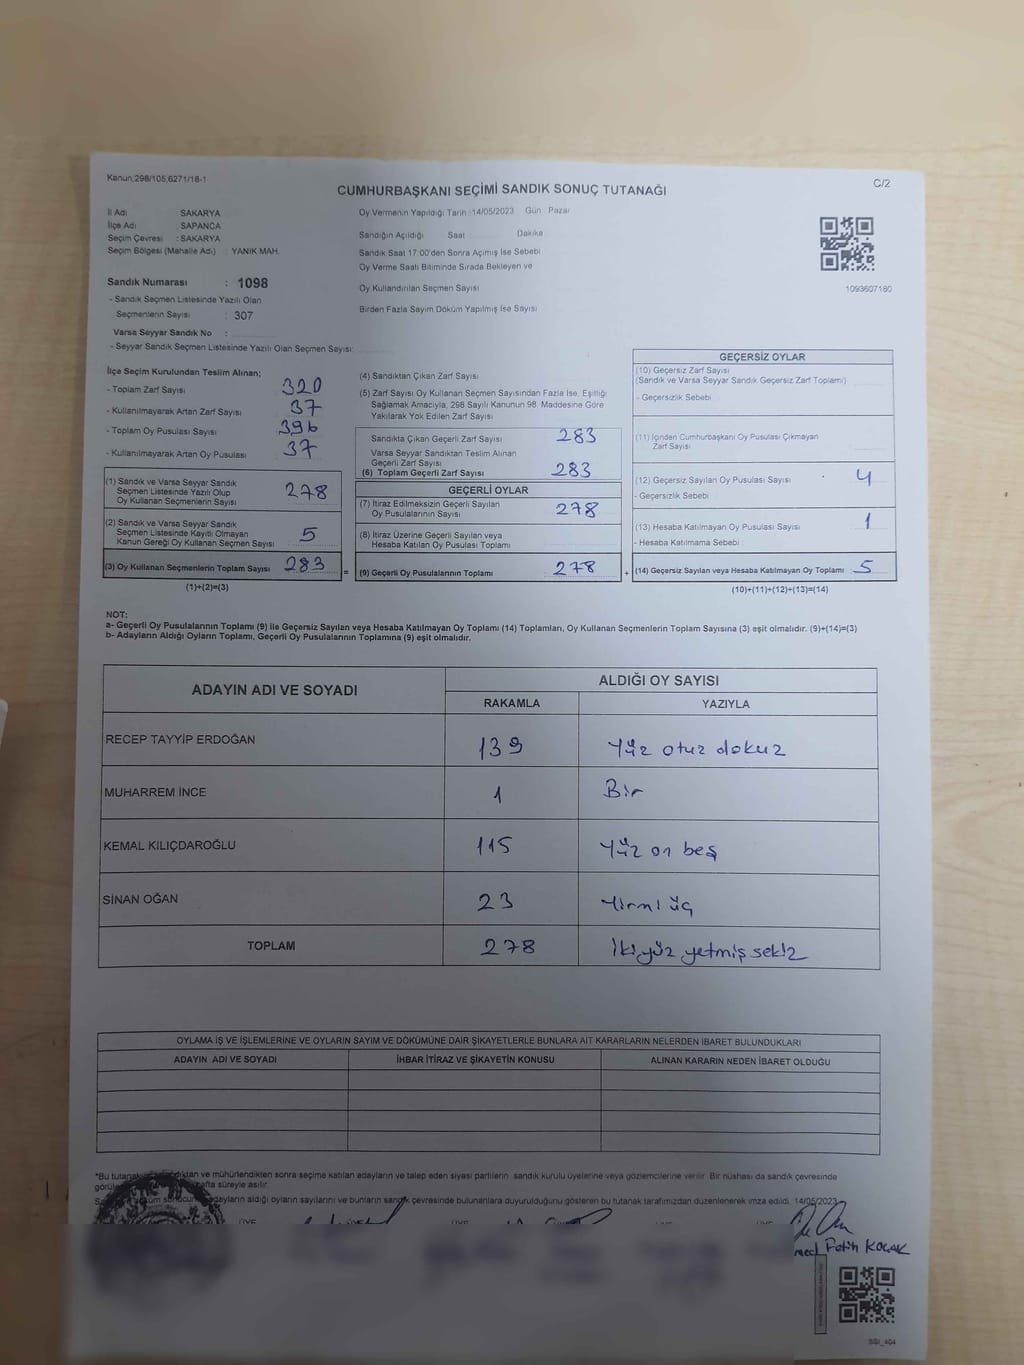 Kanun:298/105,6271/18-1
C/2
CUMHURBAŞKANI SEÇİMİ SANDIK SONUÇ TUTANAĞI
İl Adı : SAKARYA
İlçe Adı : SAPANCA
Seçim Çevresi : SAKARYA
Seçim Bölgesi (Mahalle Adı) : YANIK MAH.
Sandık Numarası : 1098
- Sandık Seçmen Listesinde Yazılı Olan
Seçmenlerin Sayısı : 307
Varsa Seyyar Sandık No :
- Seyyar Sandık Seçmen Listesinde Yazılı Olan Seçmen Sayısı:
Oy Vermenin Yapıldığı Tarih :14/05/2023 Gün : Pazar
Sandığın Açıldığı Saat Dakika
Sandık Saat 17:00'den Sonra Açımış İse Sebebi
Oy Verme Saati Bitiminde Sırada Bekleyen ve
Oy Kullandırılan Seçmen Sayısı
Birden Fazla Sayım Döküm Yapılmış İse Sayısı
1093607180
İlçe Seçim Kurulundan Teslim Alınan;
- Toplam Zarf Sayısı 320
- Kullanılmayarak Artan Zarf Sayısı 37
- Toplam Oy Pusulası Sayısı 396
- Kullanılmayarak Artan Oy Pusulası 37
(1) Sandık ve Varsa Seyyar Sandık
Seçmen Listesinde Yazılı Olup
Oy Kullanan Seçmenlerin Sayısı 278
(2) Sandık ve Varsa Seyyar Sandık
Seçmen Listesinde Kayıtlı Olmayan
Kanun Gereği Oy Kullanan Seçmen Sayısı 5
(3) Oy Kullanan Seçmenlerin Toplam Sayısı 283 =
(1)+(2)=(3)
(4) Sandıktan Çıkan Zarf Sayısı
(5) Zarf Sayısı Oy Kullanan Seçmen Sayısından Fazla İse, Eşitliği
Sağlamak Amacıyla, 298 Sayılı Kanunun 98. Maddesine Göre
Yakılarak Yok Edilen Zarf Sayısı
Sandıkta Çıkan Geçerli Zarf Sayısı 283
Varsa Seyyar Sandıktan Teslim Alınan
Geçerli Zarf Sayısı
(6) Toplam Geçerli Zarf Sayısı 283
GEÇERLİ OYLAR
(7) İtiraz Edilmeksizin Geçerli Sayılan
Oy Pusulalarının Sayısı 278
(8) İtiraz Üzerine Geçerli Sayılan veya
Hesaba Katılan Oy Pusulası Toplamı
(9) Geçerli Oy Pusulalarının Toplamı 278 +
GEÇERSİZ OYLAR
(10) Geçersiz Zarf Sayısı
(Sandık ve Varsa Seyyar Sandık Geçersiz Zarf Toplamı)
- Geçersizlik Sebebi
(11) İçinden Cumhurbaşkanı Oy Pusulası Çıkmayan
Zarf Sayısı
(12) Geçersiz Sayılan Oy Pusulası Sayısı 4
- Geçersizlik Sebebi
(13) Hesaba Katılmayan Oy Pusulası Sayısı 1
- Hesaba Katılmama Sebebi :
(14) Geçersiz Sayılan veya Hesaba Katılmayan Oy Toplamı 5
(10)+(11)+(12)+(13)=(14)
NOT:
a- Geçerli Oy Pusulalarının Toplamı (9) ile Geçersiz Sayılan veya Hesaba Katılmayan Oy Toplamı (14) Toplamları, Oy Kullanan Seçmenlerin Toplam Sayısına (3) eşit olmalıdır. (9)+(14)=(3)
b- Adayların Aldığı Oyların Toplamı, Geçerli Oy Pusulalarının Toplamına (9) eşit olmalıdır.
ADAYIN ADI VE SOYADI
ALDIĞI OY SAYISI
RAKAMLA YAZIYLA
RECEP TAYYİP ERDOĞAN 139 Yüz otuz dokuz
MUHARREM İNCE 1 Bir
KEMAL KILIÇDAROĞLU 115 Yüz on beş
SİNAN OĞAN 23 Yirmi üç
TOPLAM 278 İkiyüz yetmiş sekiz
OYLAMA İŞ VE İŞLEMLERİNE VE OYLARIN SAYIM VE DÖKÜMÜNE DAİR ŞİKAYETLERLE BUNLARA AİT KARARLARIN NELERDEN İBARET BULUNDUKLARI
ADAYIN ADI VE SOYADI İHBAR İTİRAZ VE ŞİKAYETİN KONUSU ALINAN KARARIN NEDEN İBARET OLDUĞU
*Bu ve mühürlendikten sonra seçime katılan adayların ve talep eden siyasi partilerin sandık kurulu üyelerine veya gözlemcilerine verilir. Bir nüshası da sandık çevresinde
süreyle asılır.
adayların aldığı oyların sayılarını ve bunların sandık çevresinde bulunanlara duyurulduğunu gösteren bu tutanak tarafımızdan düzenlenerek imza edildi. 14/05/2023
Fatih KOÇAK
SSI_404